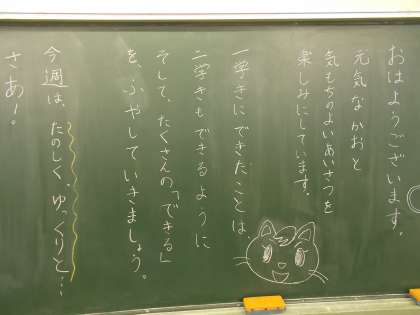 おはようございます。
元気なかおと
気もちのよいあいさつを
楽しみにしています。
一学きにできたことは
二学きもできるように
そして、たくさんの「できる」
を、ふやしていきましょう。
今週は、たのしく、ゆっくりと…
さあ!